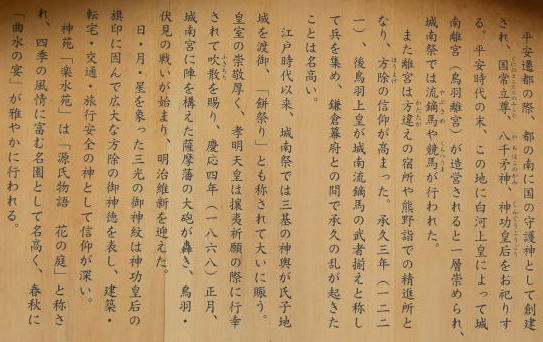 平安遷都の際、都の南に国の守護神として創建
され、国常立尊、八千矛神、神功皇后をお祀りす
る。平安時代の末、この地に白河上皇によって城
南離宮（鳥羽離宮）が造営されると一層崇められ、
城南祭では流鏑馬や競馬が行われた。
また離宮は方違えの宿所や熊野詣での精進所と
なり、方除の信仰が高まった。承久三年（一二二
一）、後鳥羽上皇が城南流鏑馬の武者揃えと称し
て兵を集め、鎌倉幕府との間で承久の乱が起きた
ことは名高い。
江戸時代以来、城南祭では三基の神輿が氏子地
域を渡御、「餅祭り」とも称されて大いに賑う。
皇室の崇敬厚く、孝明天皇は攘夷祈願の際に行幸
されて吹散を賜り、慶応四年（一八六八）正月、
城南宮に陣を構えた薩摩藩の大砲が轟き、鳥羽・
伏見の戦いが始まり、明治維新を迎えた。
日・月・星を象った三光の御神紋は神功皇后の
旗印に因んで広大な方除の御神徳を表し、建築・
転宅・交通・旅行安全の神として信仰が深い。
神苑「楽水苑」は「源氏物語　花の庭」と称さ
れ、四季の風情に富む名園として名高く、春秋に
「曲水の宴」が雅やかに行われる。